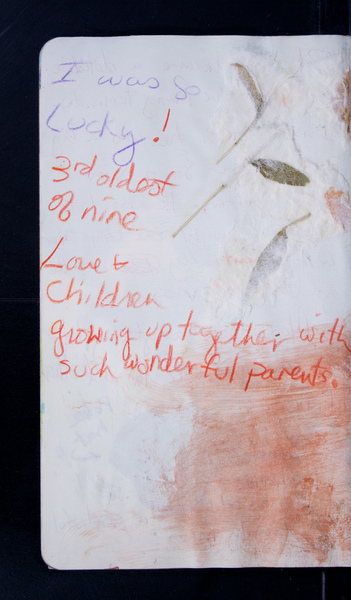 I was so
Lucky!
3rd oldest
of nine
Love &
Children
growing up together with
such wonderful parents.